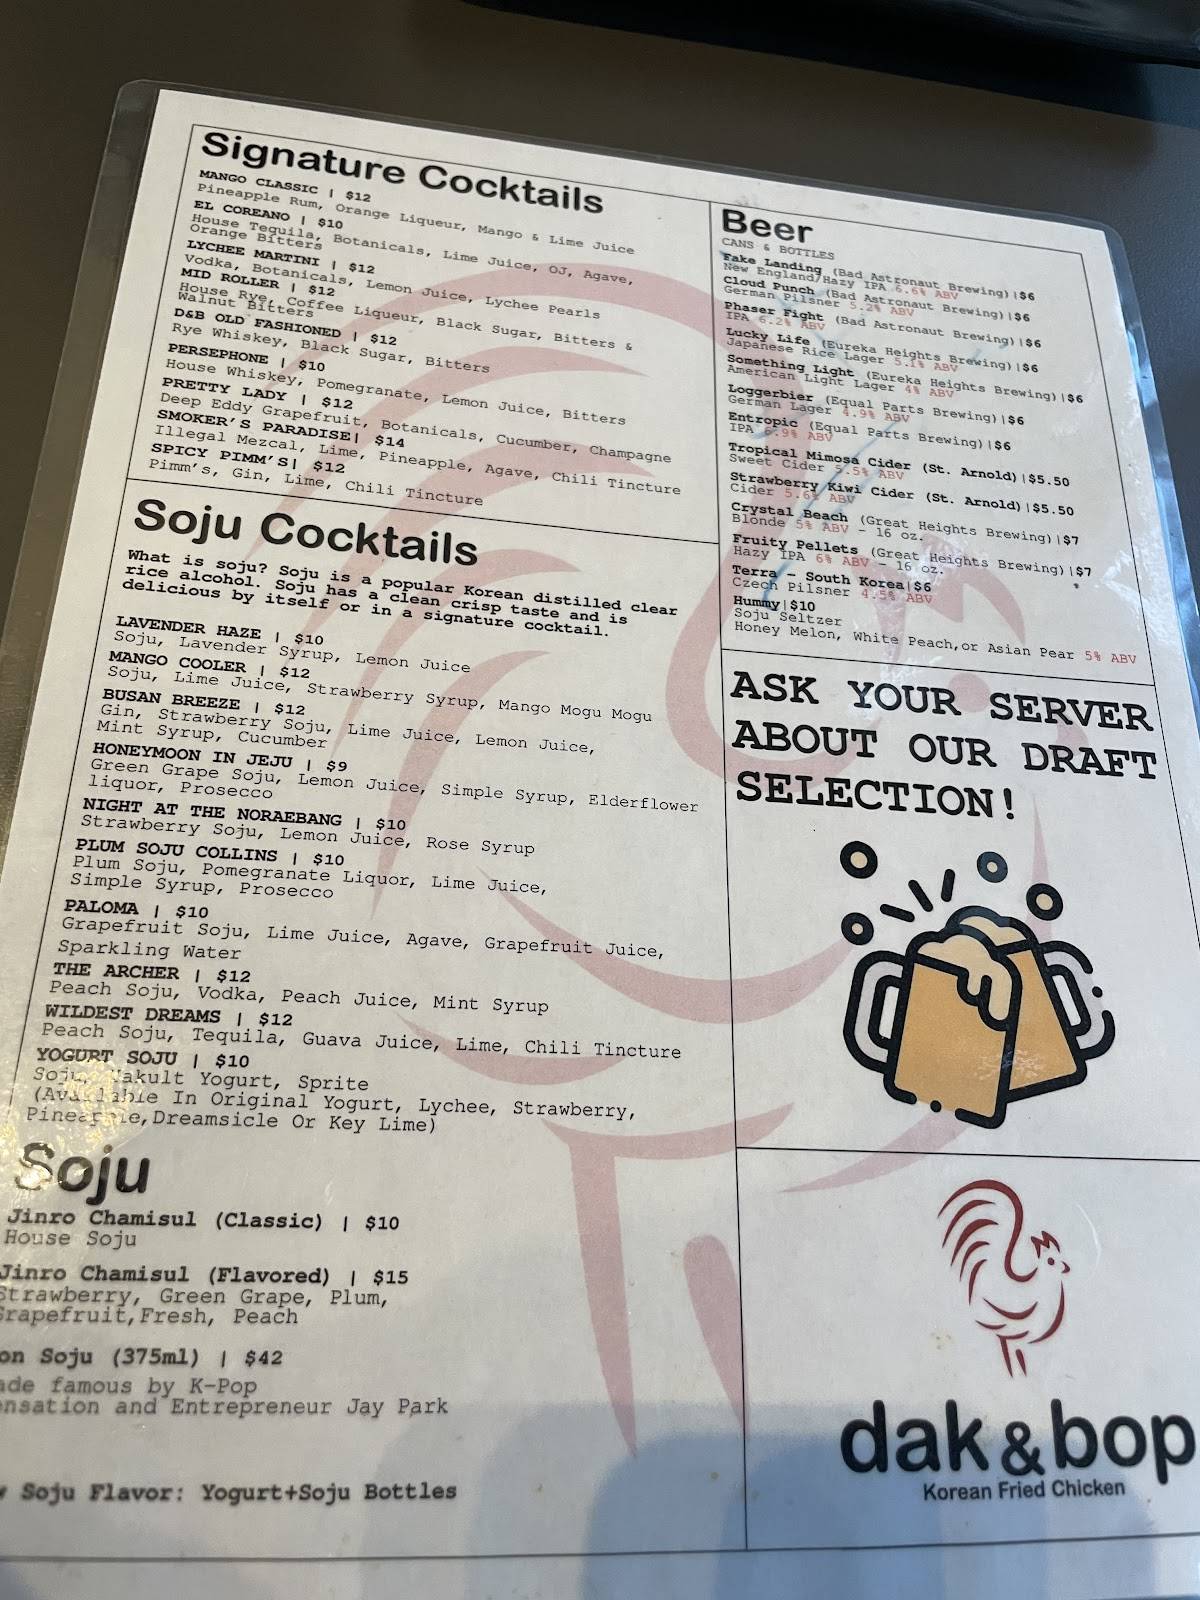 Signature Cocktails
MANGO CLASSIC | $12
Pineapple Rum, Orange Liqueur, Mango & Lime Juice
EL COREANO | $10
House Tequila, Botanicals, Lime Juice, OJ, Agave,
Orange Bitters
LYCHEE MARTINI | $12
Vodka, Botanicals, Lemon Juice, Lychee Pearls
MID ROLLER | $12
House Rye, Coffee Liqueur, Black Sugar, Bitters &
Walnut Bitters
D&B OLD FASHIONED | $12
Rye Whiskey, Black Sugar, Bitters
PERSEPHONE | $10
House Whiskey, Pomegranate, Lemon Juice, Bitters
PRETTY LADY | $12
Deep Eddy Grapefruit, Botanicals, Cucumber, Champagne
SMOKER'S PARADISE| $14
Illegal Mezcal, Lime, Pineapple, Agave, Chili Tincture
SPICY PIMM'S| $12
Pimm's, Gin, Lime, Chili Tincture
Soju Cocktails
What is soju? Soju is a popular Korean distilled clear
rice alcohol. Soju has a clean crisp taste and is
delicious by itself or in a signature cocktail.
LAVENDER HAZE | $10
Soju, Lavender Syrup, Lemon Juice
MANGO COOLER | $12
Soju, Lime Juice, Strawberry Syrup, Mango Mogu Mogu
BUSAN BREEZE | $12
Gin, Strawberry Soju, Lime Juice, Lemon Juice,
Mint Syrup, Cucumber
HONEYMOON IN JEJU | $9
Green Grape Soju, Lemon Juice, Simple Syrup, Elderflower
liquor, Prosecco
NIGHT AT THE NORAEBANG | $10
Strawberry Soju, Lemon Juice, Rose Syrup
PLUM SOJU COLLINS | $10
Plum Soju, Pomegranate Liquor, Lime Juice,
Simple Syrup, Prosecco
PALOMA | $10
Grapefruit Soju, Lime Juice, Agave, Grapefruit Juice,
Sparkling Water
THE ARCHER | $12
Peach Soju, Vodka, Peach Juice, Mint Syrup
WILDEST DREAMS | $12
Peach Soju, Tequila, Guava Juice, Lime, Chili Tincture
YOGURT SOJU | $10
Soju, Yakult Yogurt, Sprite
(Available In Original Yogurt, Lychee, Strawberry,
Pineapple,Dreamsicle Or Key Lime)
Soju
Jinro Chamisul (Classic) | $10
House Soju
Jinro Chamisul (Flavored) | $15
Strawberry, Green Grape, Plum,
Grapefruit,Fresh, Peach
Soju (375ml) | $42
famous by K-Pop
and Entrepreneur Jay Park
Soju Flavor: Yogurt+Soju Bottles
Beer
CANS & BOTTLES
Fake Landing (Bad Astronaut Brewing)|$6
New England/Hazy IPA 6.6% ABV
Cloud Punch (Bad Astronaut Brewing)|$6
German Pilsner 5.2% ABV
Phaser Fight (Bad Astronaut Brewing)|$6
IPA 6.2% ABV
Lucky Life (Eureka Heights Brewing)|$6
Japanese Rice Lager 5.1% ABV
Something Light (Eureka Heights Brewing)|$6
American Light Lager 4% ABV
Loggerbier (Equal Parts Brewing)|$6
German Lager 4.9% ABV
Entropic (Equal Parts Brewing)|$6
IPA 6.9% ABV
Tropical Mimosa Cider (St. Arnold)|$5.50
Sweet Cider 5.5% ABV
Strawberry Kiwi Cider (St. Arnold)|$5.50
Cider 5.6% ABV
Crystal Beach (Great Heights Brewing)|$7
Blonde 5% ABV - 16 oz.
Fruity Pellets (Great Heights Brewing)|$7
Hazy IPA 6% ABV - 16 oz.
Terra - South Korea|$6
Czech Pilsner 4.5% ABV
Hummy|$10
Soju Seltzer
Honey Melon, White Peach,or Asian Pear 5% ABV
ASK YOUR SERVER
ABOUT OUR DRAFT
SELECTION!
dak&bop
Korean Fried Chicken